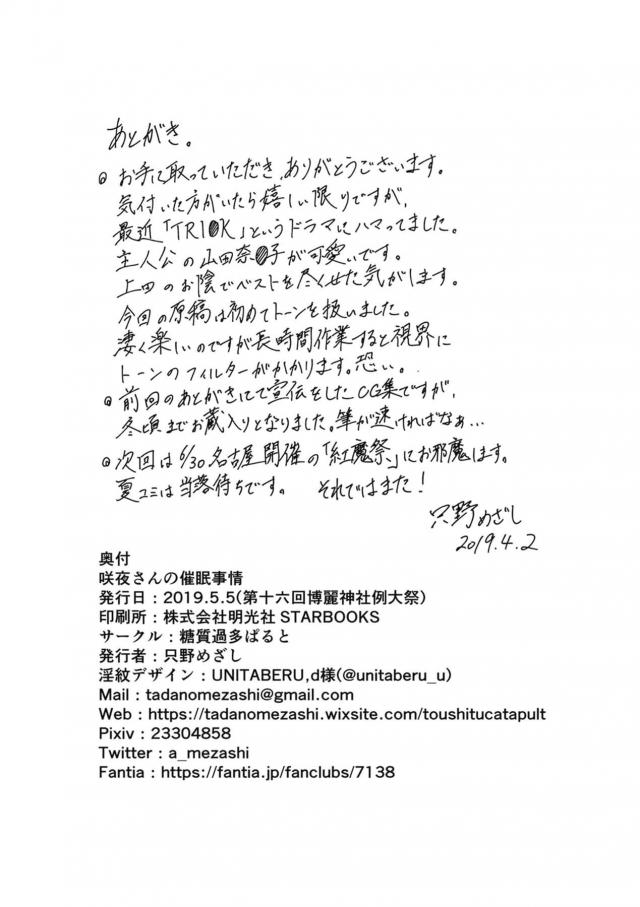 あとがき。
◎お手に取っていただき、ありがとうございます。
気付いた方がいたら嬉しい限りですが、
最近「TRI●K」というドラマにハマってました。
主人公の山田奈●子が可愛いです。
上田のお陰でベストを尽くせた気がします。
今回の原稿は初めてトーンを扱いました。
凄く楽しいのですが長時間作業すると視界に
トーンのフィルターがかかります。恐い。
◎前回のあとがきにて宣伝をしたCG集ですが、
冬頃までお蔵入りとなりました。筆が速ければなぁ…
◎次回は6/30名古屋開催の「紅魔祭」にお邪魔します。
夏コミは当落待ちです。 それではまた!
只野めざし
2019.4.2
奥付
咲夜さんの催眠事情
発行日:2019.5.5(第十六回博麗神社例大祭)
印刷所:株式会社明光社 STARBOOKS
サークル:糖質過多ぱると
発行者:只野めざし
淫紋デザイン:UNITABERU,d様(@unitaberu_u)
Mail:tadanomezashi@gmail.com
Web:https://tadanomezashi.wixsite.com/toushitucatapult
Pixiv:23304858
Twitter:a_mezashi
Fantia:https://fantia.jp/fanclubs/7138